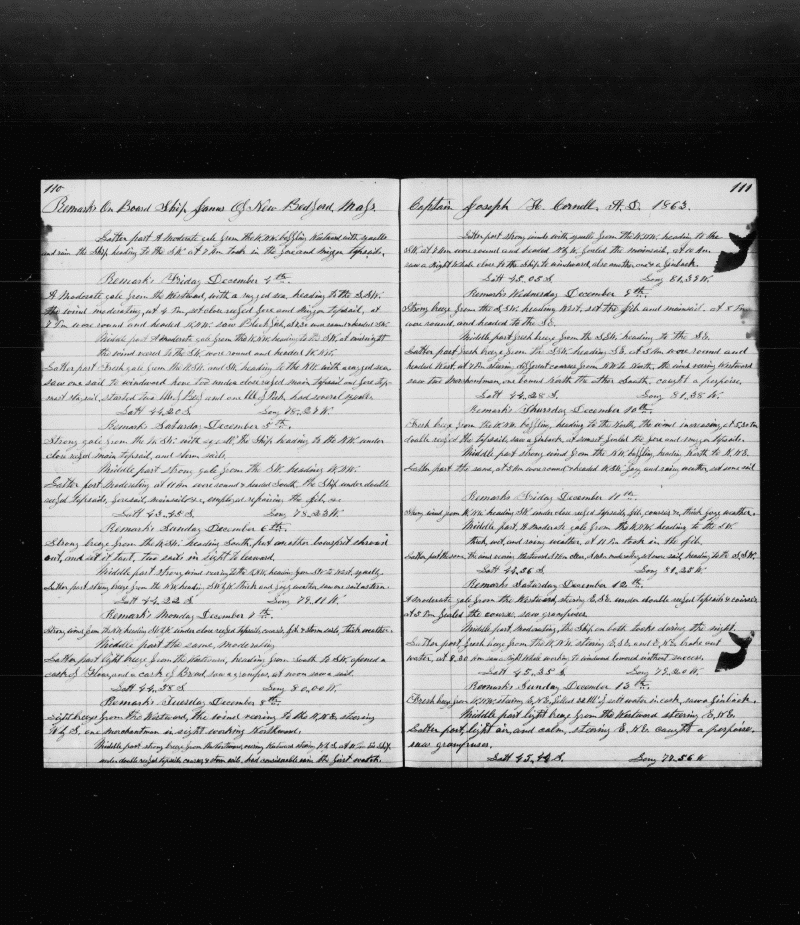 110
Remarks On Board Ship Janus Of New Bedford Mass.
Latter part A Moderate gale from the W.N.W. baffling Westward with squalls
and rain the Ship heading to the S.W. at 7 A.m took in the fore and mizzen topsails.
Remarks Friday December 4th.
A Moderate gale from the Westward, with a rugged sea, heading to the S.S.W.
the wind moderating, at 4 P.m set close reefed fore and mizzen topsails, at
7 P.m wore round and headed N.W. saw Blackfish, at 8.30 P.m wore round & headed S.W.
Middle part A Moderate gale from the W.N.W. heading to the S.W. at midnight
the wind veered to the S.W. wore round and headed W.N.W.
Latter part Fresh gale from the W.S.W. and S.W. heading to the N.W. with a rugged sea,
saw one sail to windward hove too under close reefed main topsail and fore top-
mast staysail, started two bbls of Beef and one bbl of Pork, had several squalls
Latt 44.20 S Long 78.27 W.
Remarks Saturday December 5th.
Strong gale from the W.S.W. with squalls, the Ship heading to the N.W. under
close reefed main topsail, and storm sails.
Middle part strong gale from the S.W. heading W.N.W.
Latter part Moderating, at 11 A.m wore round & headed South, the Ship under double
reefed topsails, foresail, mainsail &c, employed repairing the jib, &c
Latt 43.45 S Long 78.23 W.
Remarks Sunday December 6th.
Strong breeze from the W.S.W. heading South, put another bowsprit shroud
out, and set it taut, two sails in sight to leeward.
Middle part strong wind veering to the W.N.W. heading from S.W. to West, squally.
Latter part strong breeze from the N.W. heading S.W. by W thick and foggy weather saw one sail astern.
Latt 44.22 S Long 79.11 W.
Remarks Monday December 7th.
strong wind from the N.W. heading S.W. by W under close reefed topsails, courses, jib & storm sails, thick weather.
Middle part the same, moderating
Latter part light breeze from the Westward, heading from South to S.W. opened a
cask of Flour, and a cask of Bread, saw a grampus, at noon saw a sail.
Latt 44.58 S Long 80.00 W.
Remarks Tuesday December 8th.
Light breeze from the Westward, the wind veering to the N.N.E. steering
W by S, one Merchantman in sight working Northward.
Middle part strong breeze from the Northward, veering Westward steering W by S. at 10 P.m the Ship
under double reefed topsails, courses & storm sails, had considerable rain the first watch.
111
Captain Joseph H. Cornell. A.D. 1863.
Latter part strong winds with squalls from the W.N.W. heading to the
S.W. at 7 A.m wore round and headed N by W. furled the mainsail, at 10 A.m
saw a Right Whale close to the Ship to windward, also another, and a finback.
Latt 45.05 S Long 81.39 W.
Remarks Wednesday December 9th.
Strong breeze from the S.S.W. heading West, set the jib and mainsail, at 5 P.m
wore round, and headed to the S.E.
Middle part fresh breeze from the S.S.W. heading to the S.E.
Latter part Fresh breeze from the S.S.W. heading S.E. at 5 A.m wore round and
headed West, at 7 A.m steering different courses from N.W. to North, the wind veering Westward
saw two Merchantmen, one bound North the other South, caught a porpoise.
Latt 44.28 S Long 81.38 W.
Remarks Thursday December 10th.
Fresh breeze from the W.N.W. baffling, heading to the North, the wind increasing at 5.30 P.m
double reefed the topsails, saw a finback, at sunset furled the fore and mizzen topsails.
Middle part strong wind from the N.W. baffling, heading North to N.N.E.
Latter part the same, at 3 A.m wore round & headed W.S.W. foggy and rainy weather, set some sail
Remarks Friday December 11th.
Strong wind from W.N.W. heading S.W. under close reefed topsails, jib, courses &c, thick foggy weather.
Middle part A Moderate gale from the W.N.W. heading to the S.W.
thick, wet, and rainy weather, at 11 P.m took in the jib.
Latt 44.56 S Long 81.25 W.
Remarks Saturday December 12th.
A Moderate gale from the Westward, steering E.S.E. under double reefed topsails & courses
at 5 P.m furled the courses, saw grampuses.
Middle part Moderating, the Ship on both tacks during the night.
Latter part Fresh breeze from the W.N.W. steering E.S.E. and E.N.E. broke out
water, at 8.30 A.m saw Right Whale working to windward lowered without success.
Latt 45.35 S Long 79.20 W.
Remarks Sunday December 13th.
Fresh breeze from W.N.W. steering E.N.E. filled 22 bbls of salt water in cask, saw finback.
Middle part light breeze from the Westward steering E.N.E.
Latter part, light air, and calm, steering E.N.E. caught a porpoise,
saw grampuses.
Latt 45.44 S. Long 77.56 W